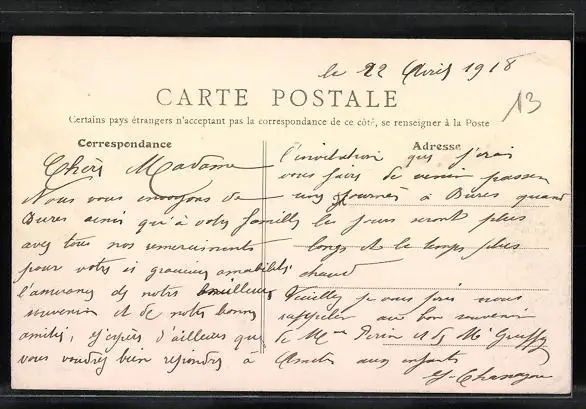 le 22 Avril 1918
13
CARTE POSTALE
Certains pays étrangers n'acceptent pas la correspondance de ce côté, se renseigner à la Poste
Correspondance
Chère Madame
Nous vous envoyons de
Bures ainsi qu'à votre famille
avec tous nos remerciements
pour votre si gracieuse amabilité,
l'assurance de notre meilleur
souvenir et de notre bonne
amitié, j'espère d'ailleurs que
vous voudrez bien répondre à
Adresse
l'invitation que j'avais
vous faire de venir passer
une journée à Bures quand
les jours seront plus
longs et le temps plus
chaud
Veuillez je vous prie nous
rappeler au bon souvenir
de Mme Perin et de Mr
aux enfants